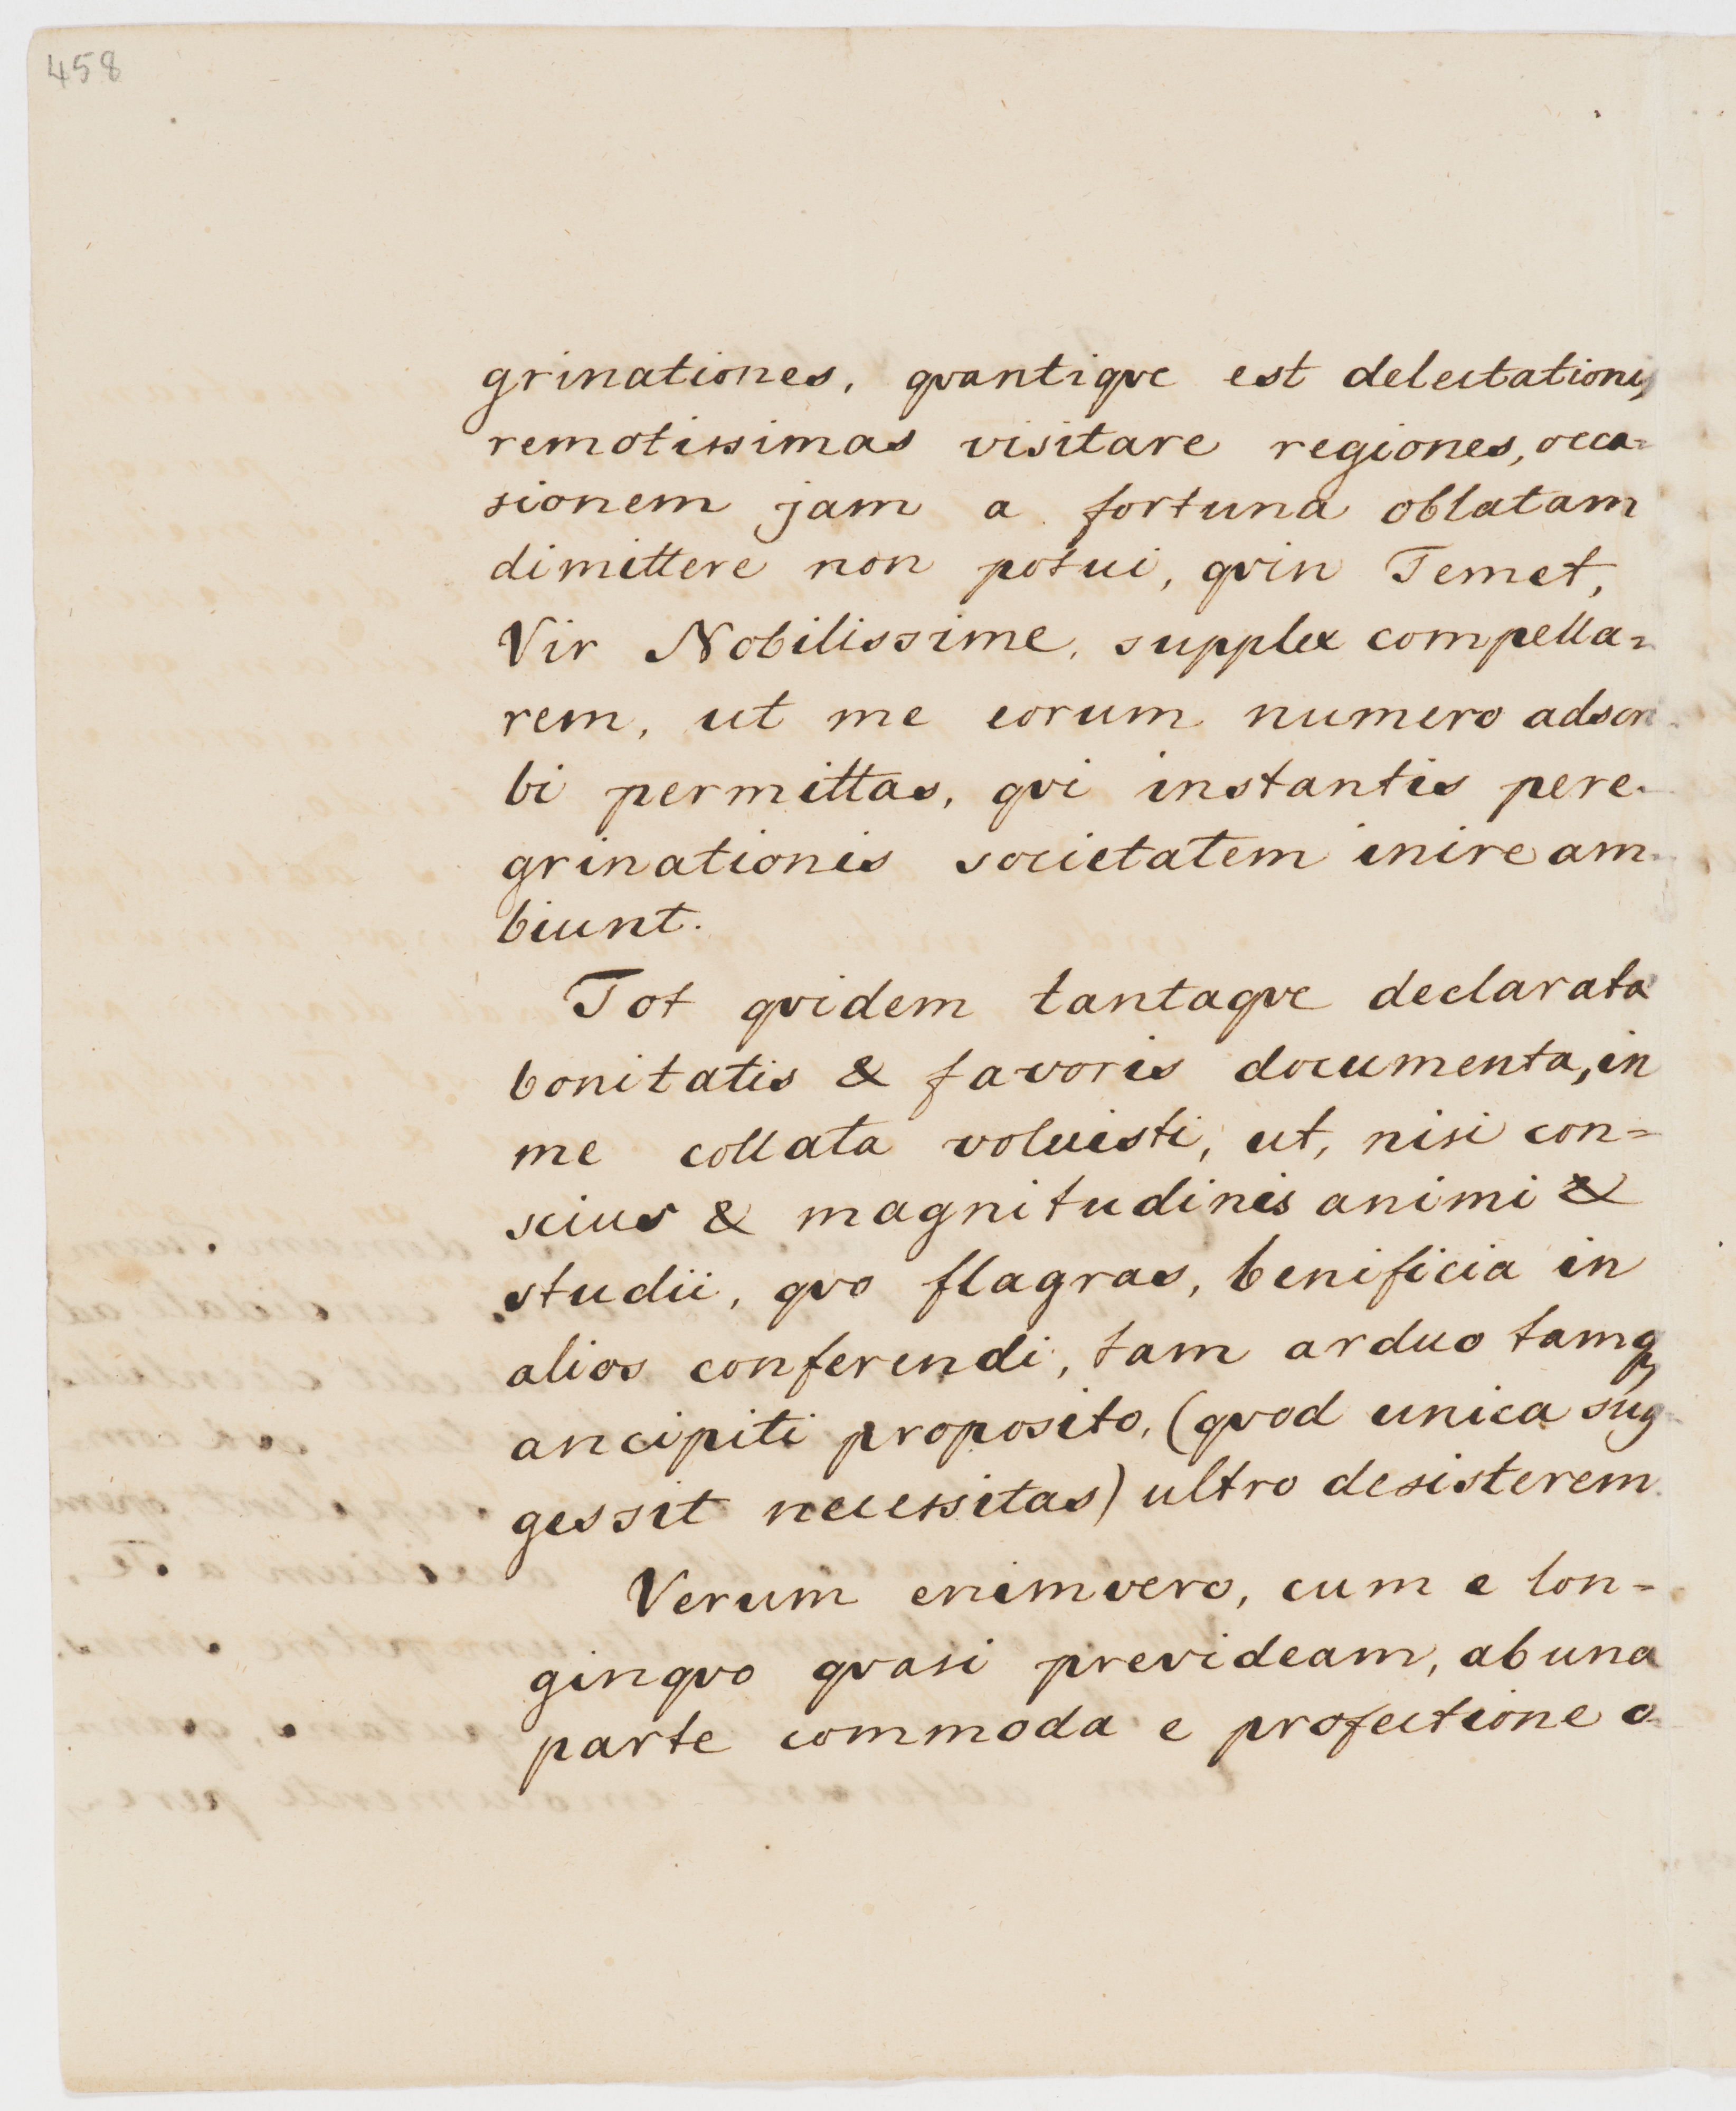 458
grinationes, qvantiqve est delectationis
remotissimas visitare regiones, occa=
sionem jam a fortuna oblatam
dimittere non potui, qvin Temet,
Vir Nobilissime, supplex compella=
rem, ut me eorum numero adscri
bi permittas, qvi instantis pere-
grinationis societatem inire am-
biunt.
Tot qvidem tantaqve declarata
bonitatis & favoris documenta, in
me collata voluisti, ut, nisi con=
scius & magnitudinis animi &
studii, qvo flagras, benificia in
alios conferendi, tam arduo tamq,
ancipiti proposito, (qvod unica sug-
gessit necessitas) ultro desisterem.
Verum enimvero, cum e lon=
ginqvo qvasi prevideam, ab una
parte commoda e profectione o-